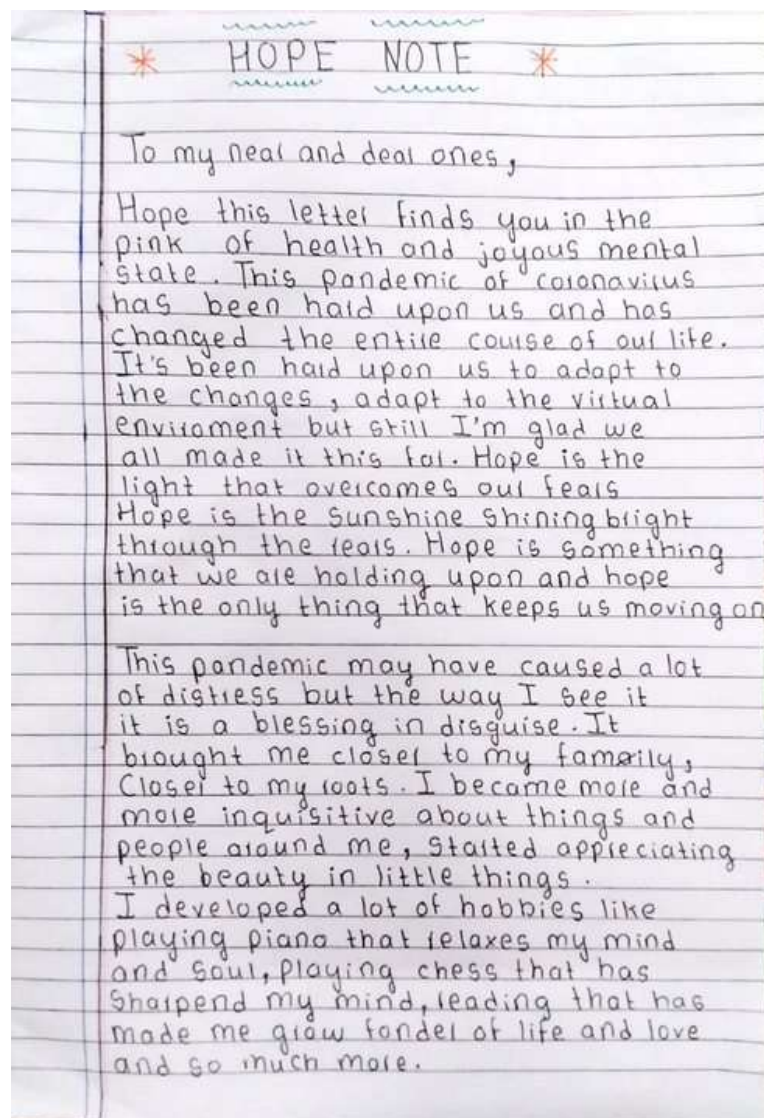 HOPE NOTE
To my near and dear ones,
Hope this letter finds you in the
pink of health and joyous mental
state. This pandemic of coronavirus
has been hard upon us and has
changed the entire course of our life.
It's been hard upon us to adapt to
the changes, adapt to the virtual
enviroment but still I'm glad we
all made it this far. Hope is the
light that overcomes our fears
Hope is the sunshine shining bright
through the tears. Hope is something
that we are holding upon and hope
is the only thing that keeps us moving on
This pandemic may have caused a lot
of distress but the way I see it
it is a blessing in disguise. It
brought me closer to my family,
Closer to my roots. I became more and
more inquisitive about things and
people around me, Started appreciating
the beauty in little things.
I developed a lot of hobbies like
playing piano that relaxes my mind
and soul, playing chess that has
Sharpend my mind, reading that has
made me grow fonder of life and love
and so much more.